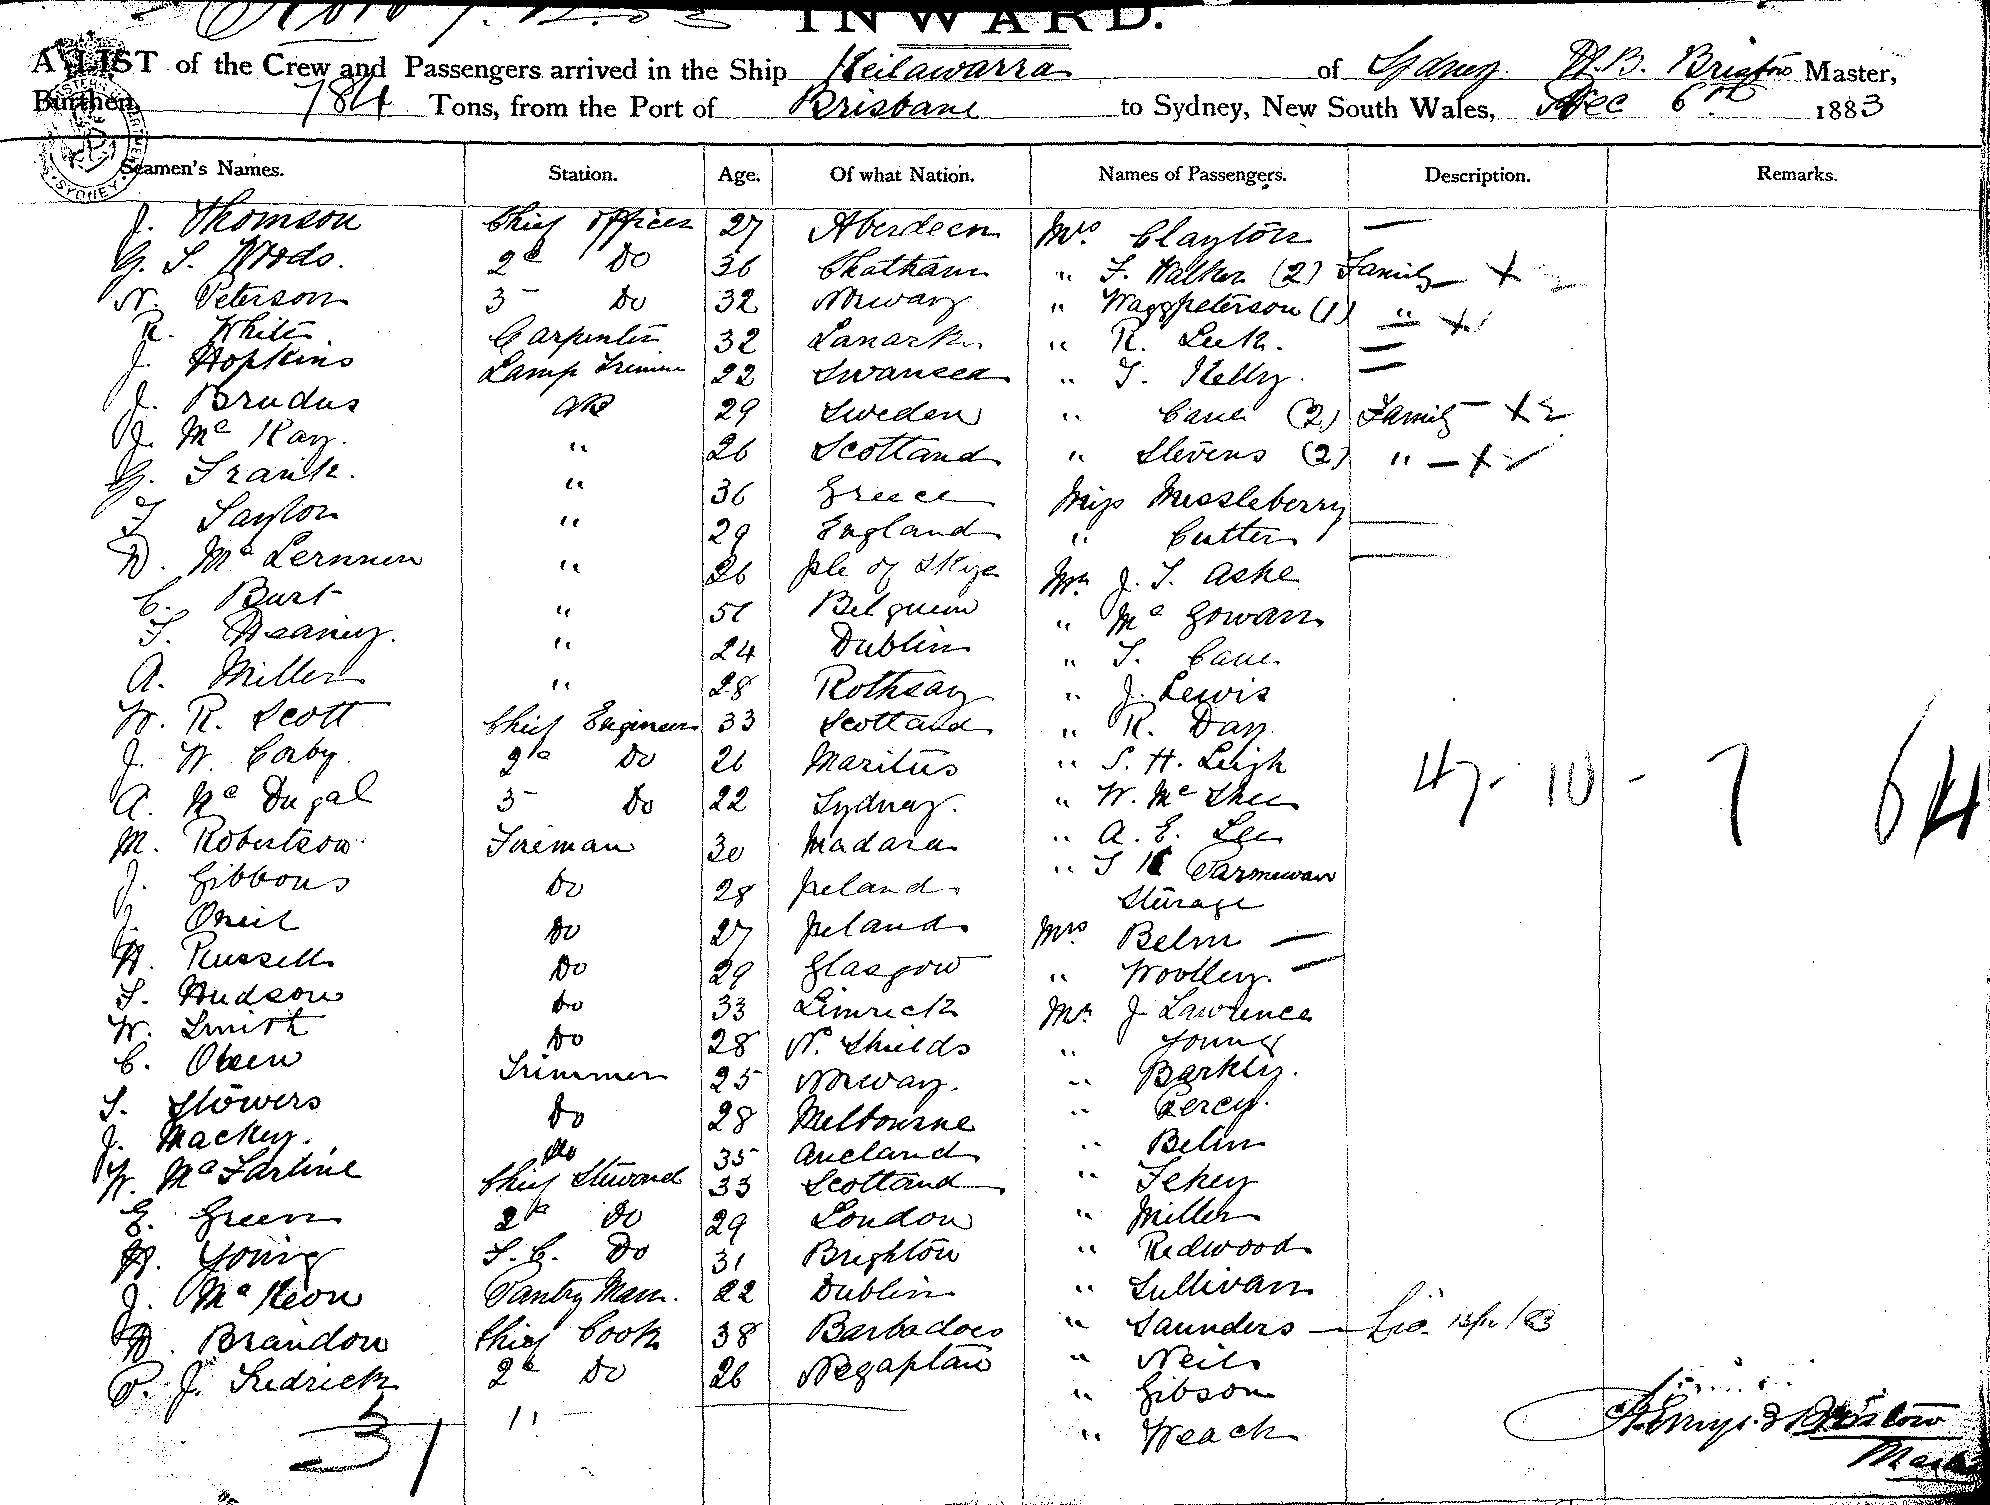 INWARD.
A LIST of the Crew and Passengers arrived in the Ship Keilawarra of Sydney H. B. Bristow Master,
Burthen, 784 Tons, from the Port of Brisbane to Sydney, New South Wales, Dec 6th 1883
Seamen's Names. Station. Age. Of what Nation. Names of Passengers. Description. Remarks.
J. Thomson Chief officer 27 Aberdeen Mrs Clayton —
G. S. Woods. 2d Do 36 Chatham " F. Walker (2) Family
N. Peterson 3 Do 32 Norway " Waggpeterson (1) "
R. White Carpenter 32 Lanark " R. Leek. —
J. Hopkins Lamp Trimmer 22 Swansea " T. Kelly. —
J. Brudus AB 29 Sweden " Cane (2) Family
J. Mc Kay. " 26 Scotland " Stevens (2) "
G. Frank. " 36 Greece Miss Mussleberry
F Taylor " 29 England " Cutter
D. Mc Lernnen " 26 Isle of Skye Mr J. S. Ashe
C. Burt " 51 Belguim " Mc Gowan
T. Heaney. " 24 Dublin " T. Cane
A. Miller " 28 Rothsay " J. Lewis
W. R. Scott Chief Engineer 33 Scotland " R. Day
J. W. Corby. 2d Do 26 Maritus " S. H. Leigh
A. Mc Dugal 3 Do 22 Sydney. " W. Mc Shee 47 - 10 - 7 64
M. Robertson Fireman 30 Madara " A. E. Lee
J. Gibbons Do 28 Ireland " Parmewan
Sturage
J. Oneil Do 27 Ireland Mrs Belm —
H. Russell Do 29 Glasgow " Woolley. —
S. Hudson Do 33 Limrick Mr J Lawrence
W. Smith Do 28 N. Shields " Young
C. Olsen Trimmer 25 Norway. " Barkly.
S. Stowers Do 28 Melbourne " Percy.
J. Mackey. Do 35 Aucland " Belm
W. Mc Farline Chief Steward 33 Scotland " Fekey
E. Green 2d Do 29 London " Miller
H. Young F. C. Do 31 Brighton " Redwood
J. Mc Keon Pantry Man. 22 Dublin " Sullivan
H. Brandon Chief Cook 38 Barbadoes " Saunders
P. J. Fredrick 2d Do 26 Negaptan " Neil
" Gibson
31 " Weack